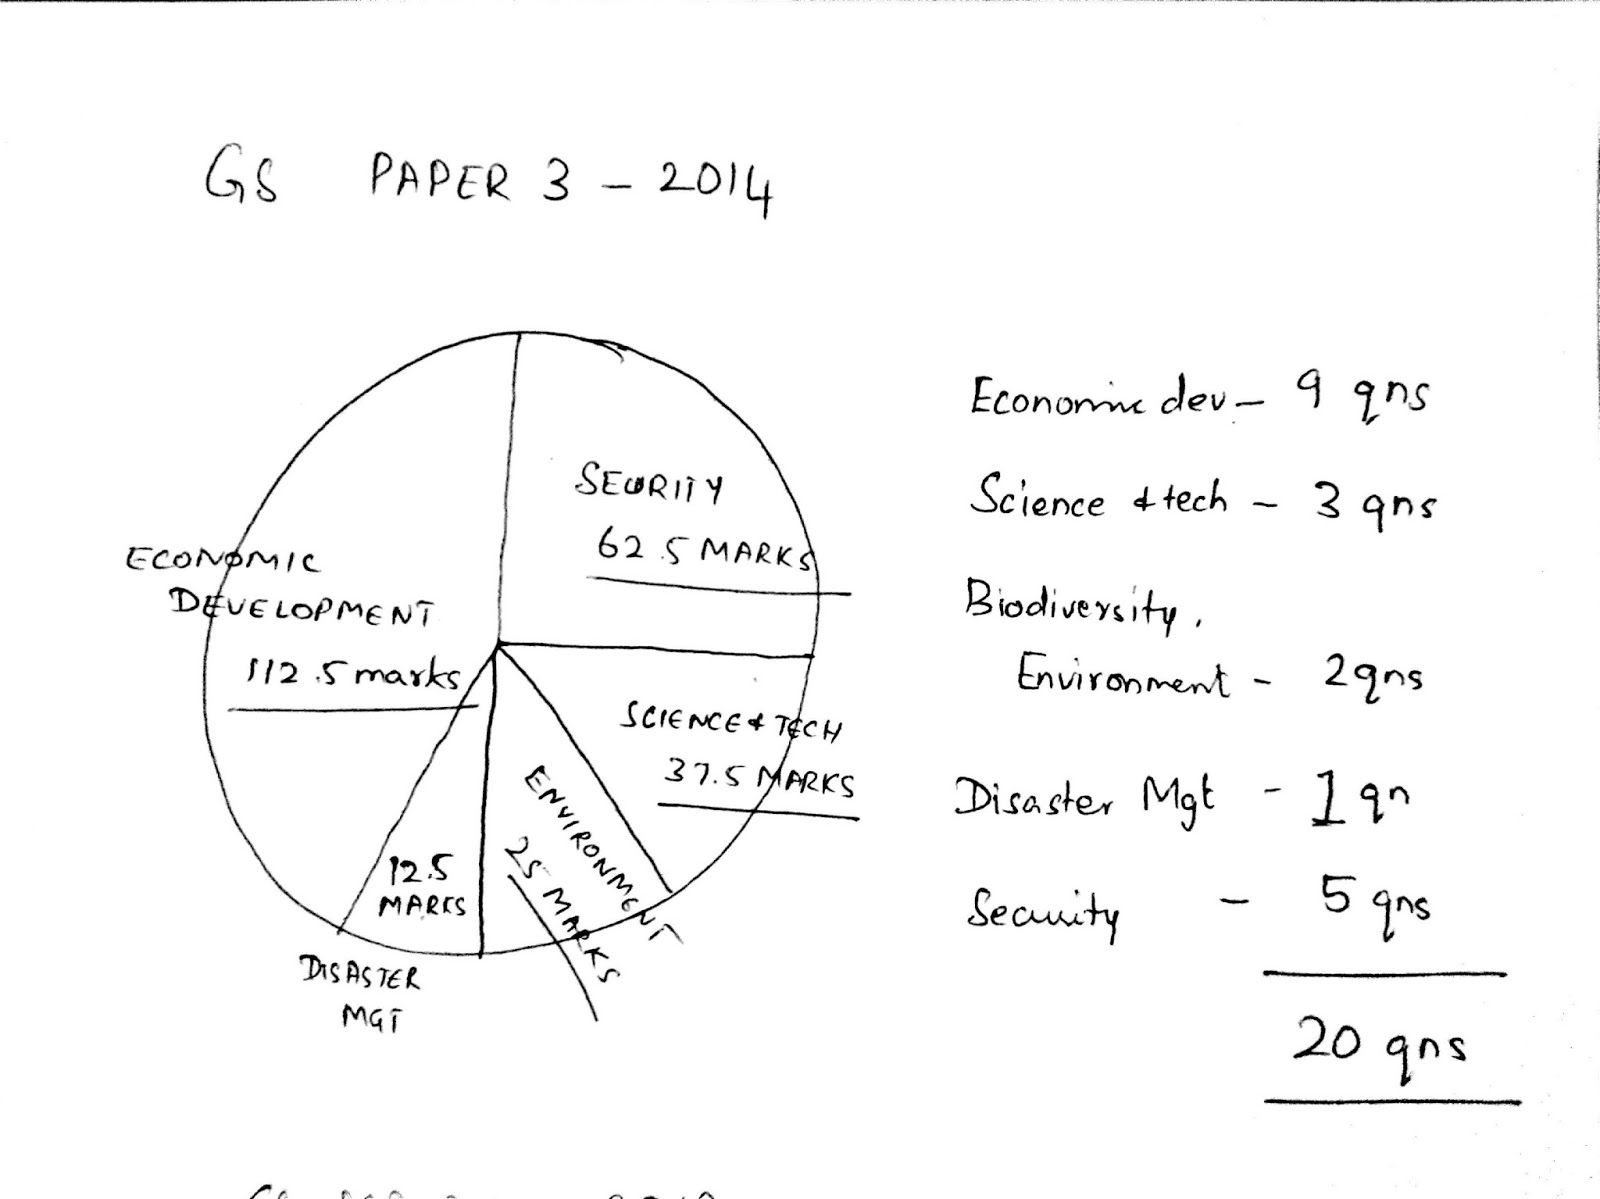 GS PAPER 3 - 2014
SECURITY
62.5 MARKS
ECONOMIC
DEVELOPMENT
112.5 marks
SCIENCE & TECH
37.5 MARKS
ENVIRONMENT
25 MARKS
12.5
MARKS
DISASTER
MGT
Economic dev - 9 qns
Science & tech - 3 qns
Biodiversity,
Environment - 2 qns
Disaster Mgt - 1 qn
Security - 5 qns
20 qns